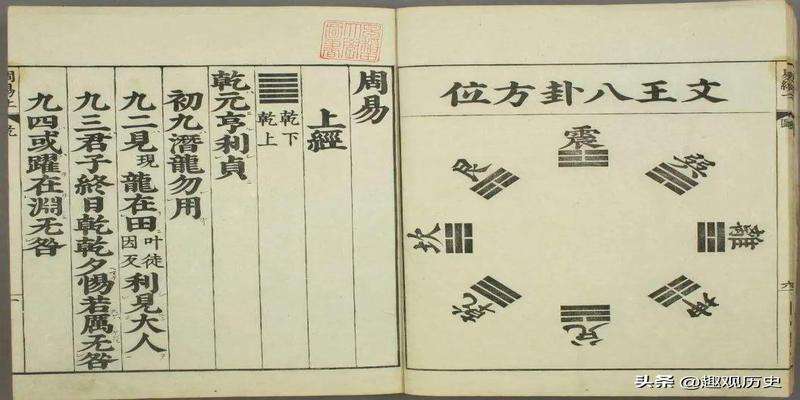 文王八卦方位
震
巽
離
坤
兌
乾
坎
艮
周易
上經
乾下
乾上
乾元亨利貞
初九潛龍勿用
九二見現龍在田叶徒因反利見大人
九三君子終日乾乾夕惕若厲无咎
九四或躍在淵无咎
周易上
乾
头条 @趣观历史